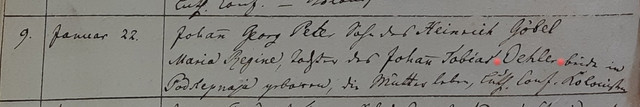 Luth. Conf. — Kolon
9. Januar 22. Johañ Georg Peter Sohn des Heinrich Göbel
Maria Regine, Tochter des Johañ Tobias Oehler beide in
Podstepnaja geboren, die Mutter leben, Luth. Conf. Kolonisten